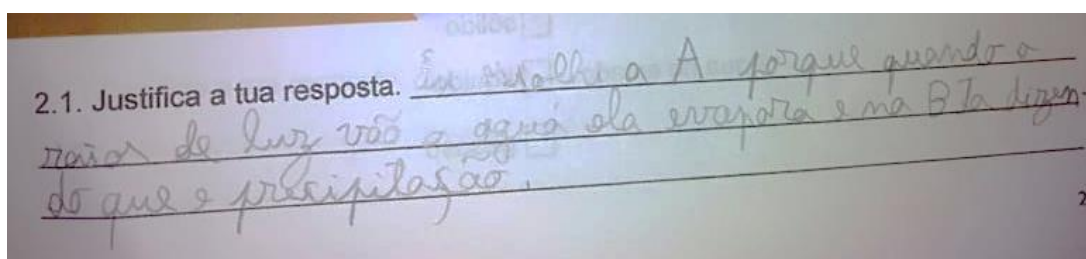 2.1. Justifica a tua resposta. Eu escolhi a A porque quando o
raios de luz vão a agua ela evapora e na B Ta dizen
do que e presipitasão.
2